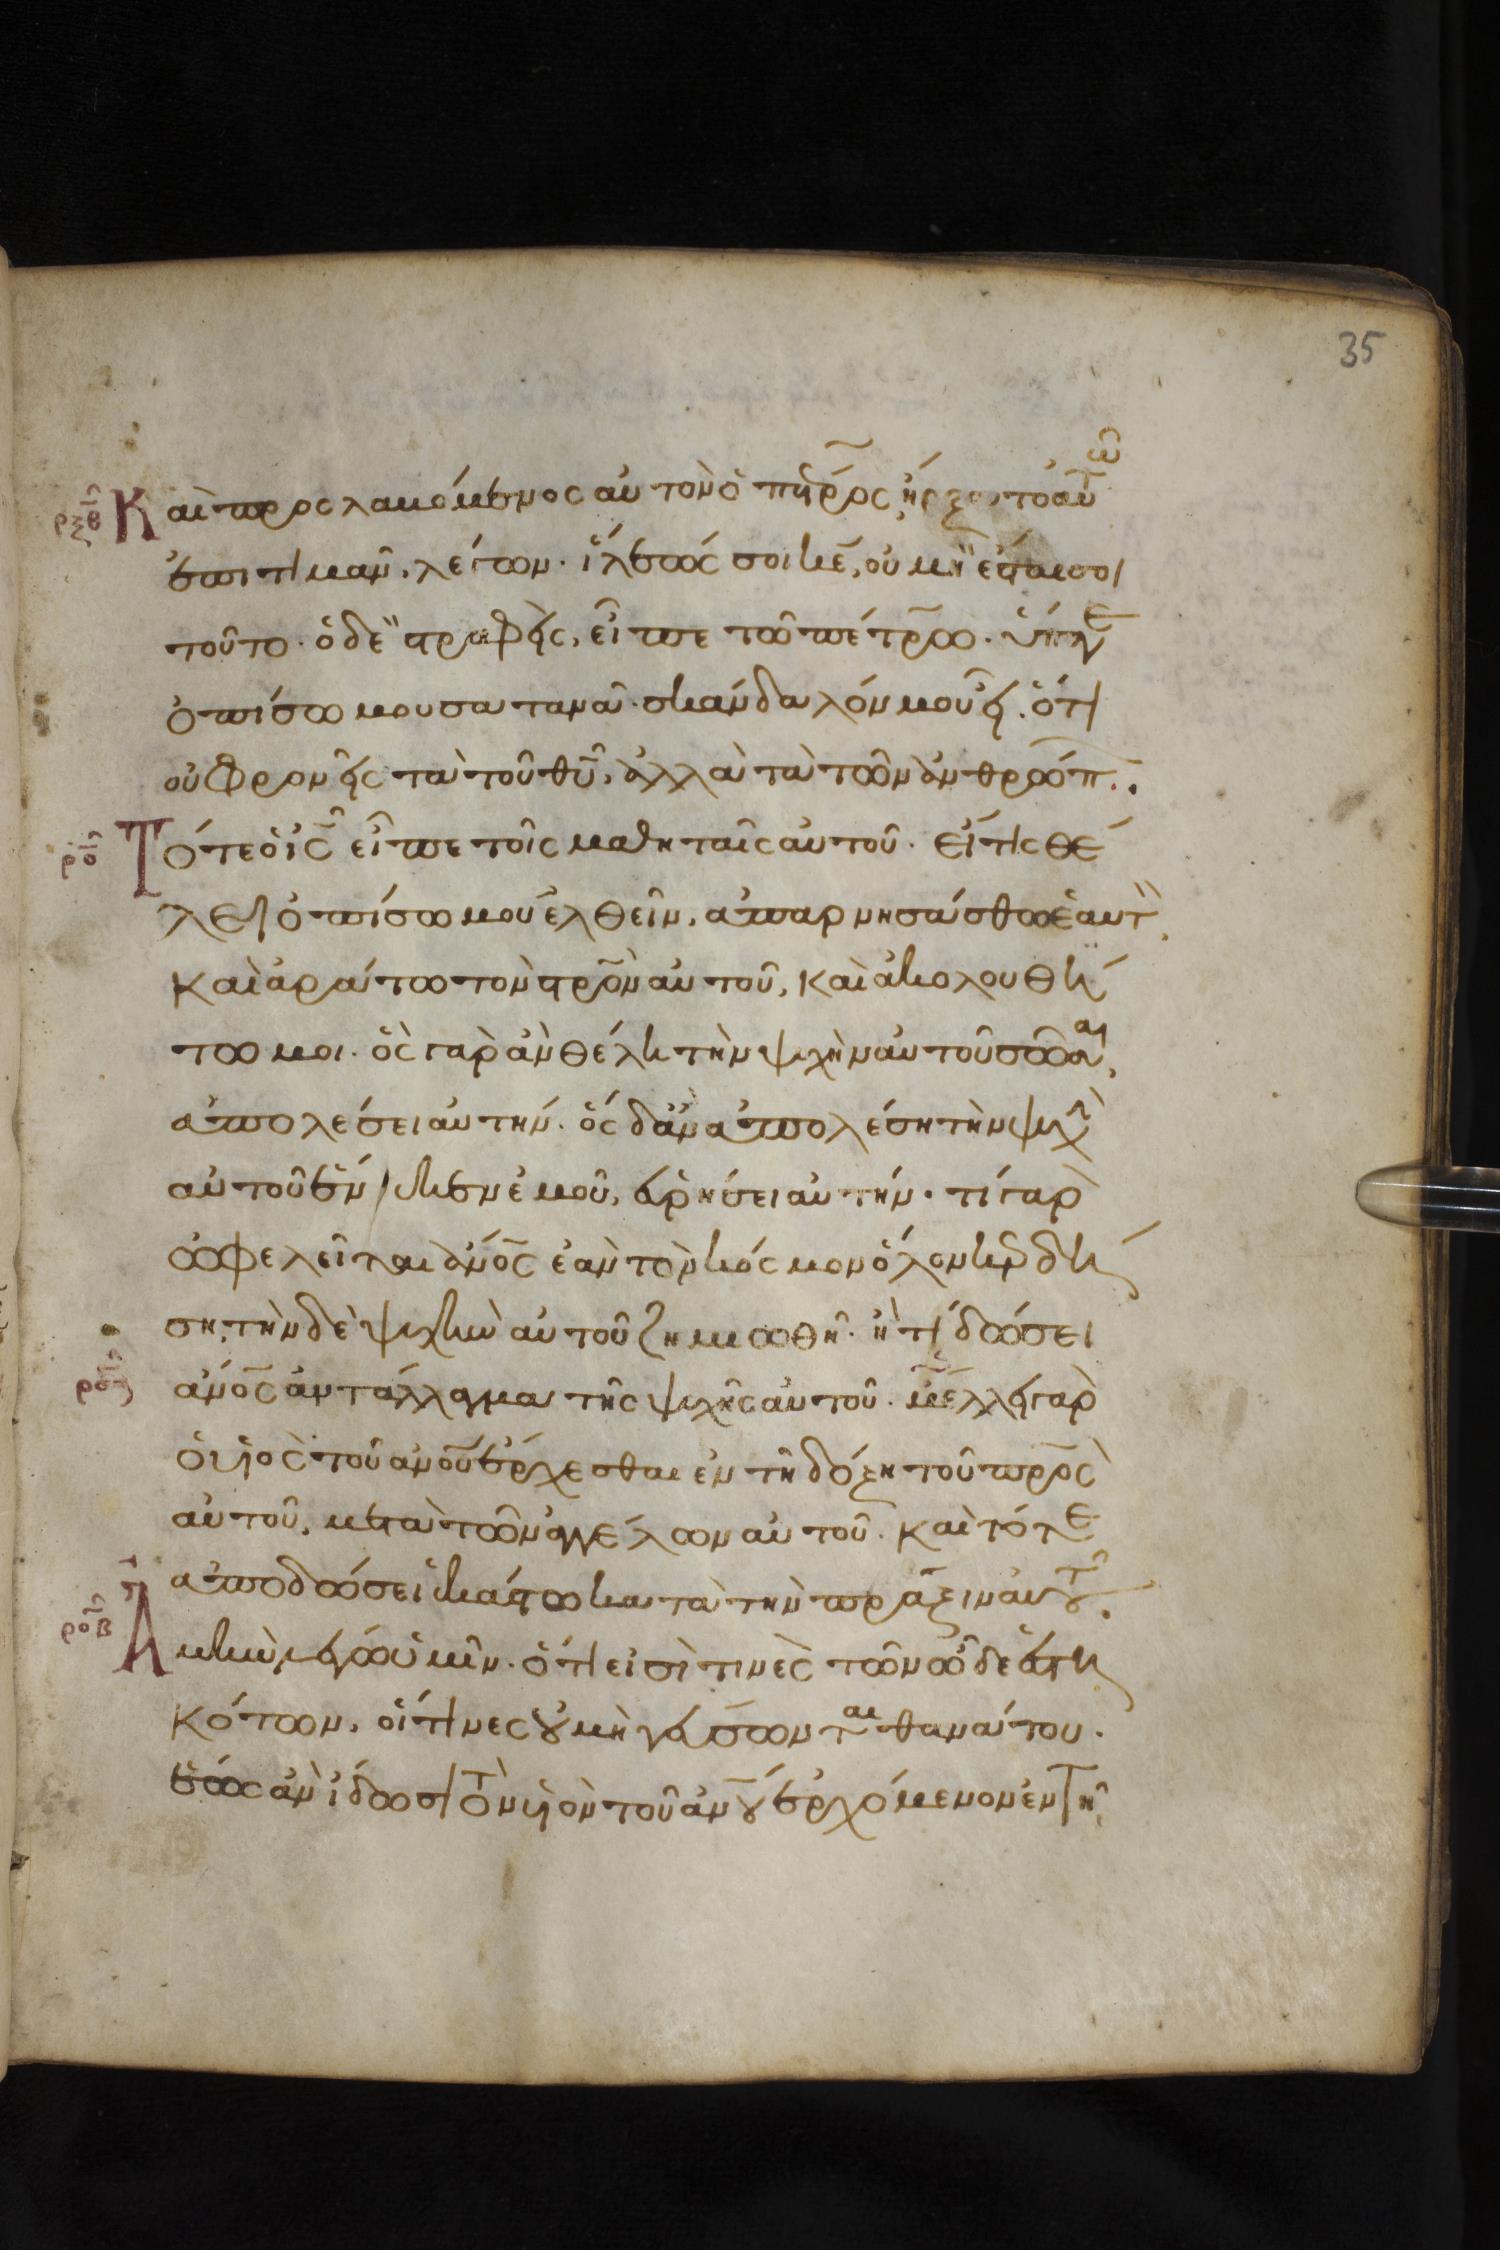 35
ρξθ Καὶ προσλαβόμενος αὐτὸν ὁ πέτρος, ἤρξατο αὐτῶ
ἐπιτιμᾶν, λέγων· ἵλεώς σοι κε̄, οὐ μὴ ἔσται σοι
τοῦτο· ὁ δὲ στραφεὶς, εἶπε τῶ πέτρω· ὕπαγε
ὀπίσω μου σατανᾶ· σκάνδαλόν μου εἶ· ὅτι
οὐ φρονεῖς τὰ τοῦ θῡ, ἀλλὰ τὰ τῶν ἀνθρώπ..
ρο Τότε ὁ ις̄ εἶπε τοῖς μαθηταῖς αὐτοῦ· εἴ τις θέ
λει ὀπίσω μου ἐλθεῖν, ἀπαρνησάσθω ἑαυτ,
καὶ ἀράτω τὸν στρον αὐτοῦ, καὶ ἀκολουθεί
τω μοι· ὃς γὰρ ἂν θέλη τὴν ψυχὴν αὐτοῦ σῶσαι,
ἀπολέσει αὐτήν· ὃς δ' ἂν ἀπολέση τὴν ψυχὴ
αὐτοῦ ἕνεκεν ἐμοῦ, εὑρήσει αὐτήν· τί γὰρ
ὠφελεῖται ἀνος̄ ἐὰν τὸν κόσμον ὅλον κερδή
ση, τὴν δὲ ψυχὴν αὐτοῦ ζημιωθῆ· ἢ τί δώσει
ἀνος̄ ἀντάλλαγμα τῆς ψυχῆς αὐτοῦ· μέλλει γὰρ
ὁ υἱὸς τοῦ ἀνοῡ ἔρχεσθαι ἐν τῆ δόξη τοῦ πρς̄
αὐτοῦ, μετὰ τῶν ἀγγέλων αὐτοῦ· καὶ τότε
ἀποδώσει ἑκάστω κατὰ τὴν πρᾶξιν αὐτοῦ.
ροβ Ἀμὴν λέγω ὑμῖν· ὅτι εἰσὶ τινὲς τῶν ὧδε ἑστη
κότων, οἵτινες οὐ μὴ γεύσωνται θανάτου·
ἕως ἂν ἴδωσι τὸν υἱὸν τοῦ ἀνου ἐρχόμενον ἐν τῆ